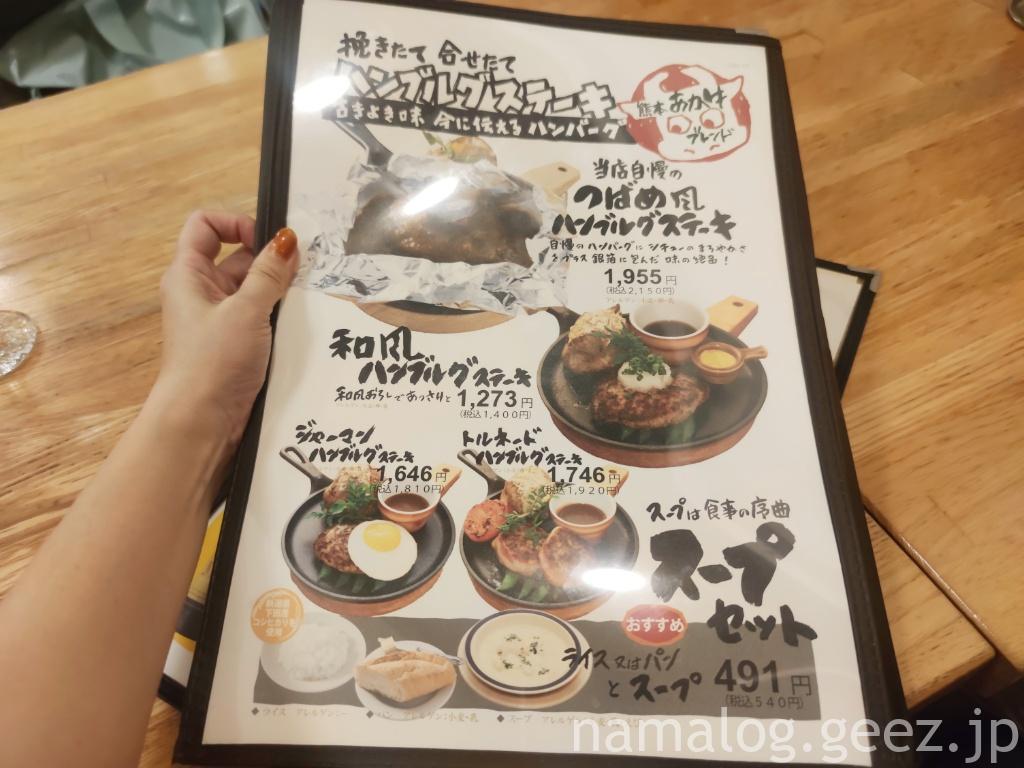 挽きたて 合せたて
ハンブルグステーキ
古きよき味 今に伝える ハンバーグ
熊本 あか牛
ブレンド
当店自慢の
つばめ風
ハンブルグステーキ
自慢のハンバーグにシチューのまろやかさ
をプラス 銀箔に包んだ味の絶品!
1,955円
(税込2,150円)
和風
ハンブルグステーキ
和風おろしであっさりと 1,273円
(税込1,400円)
ジャーマン
ハンブルグステーキ
1,646円
(税込1,810円)
トルネード
ハンブルグステーキ
1,746円
(税込1,920円)
スープは食事の序曲
スープ
セット
おすすめ
ライス又はパン
と スープ 491円
(税込540円)
コシヒカリを
使用
◆ライス アレルゲン:ー ◆パン アレルゲン:小麦・乳 ◆スープ アレルゲン
namalog.geez.jp